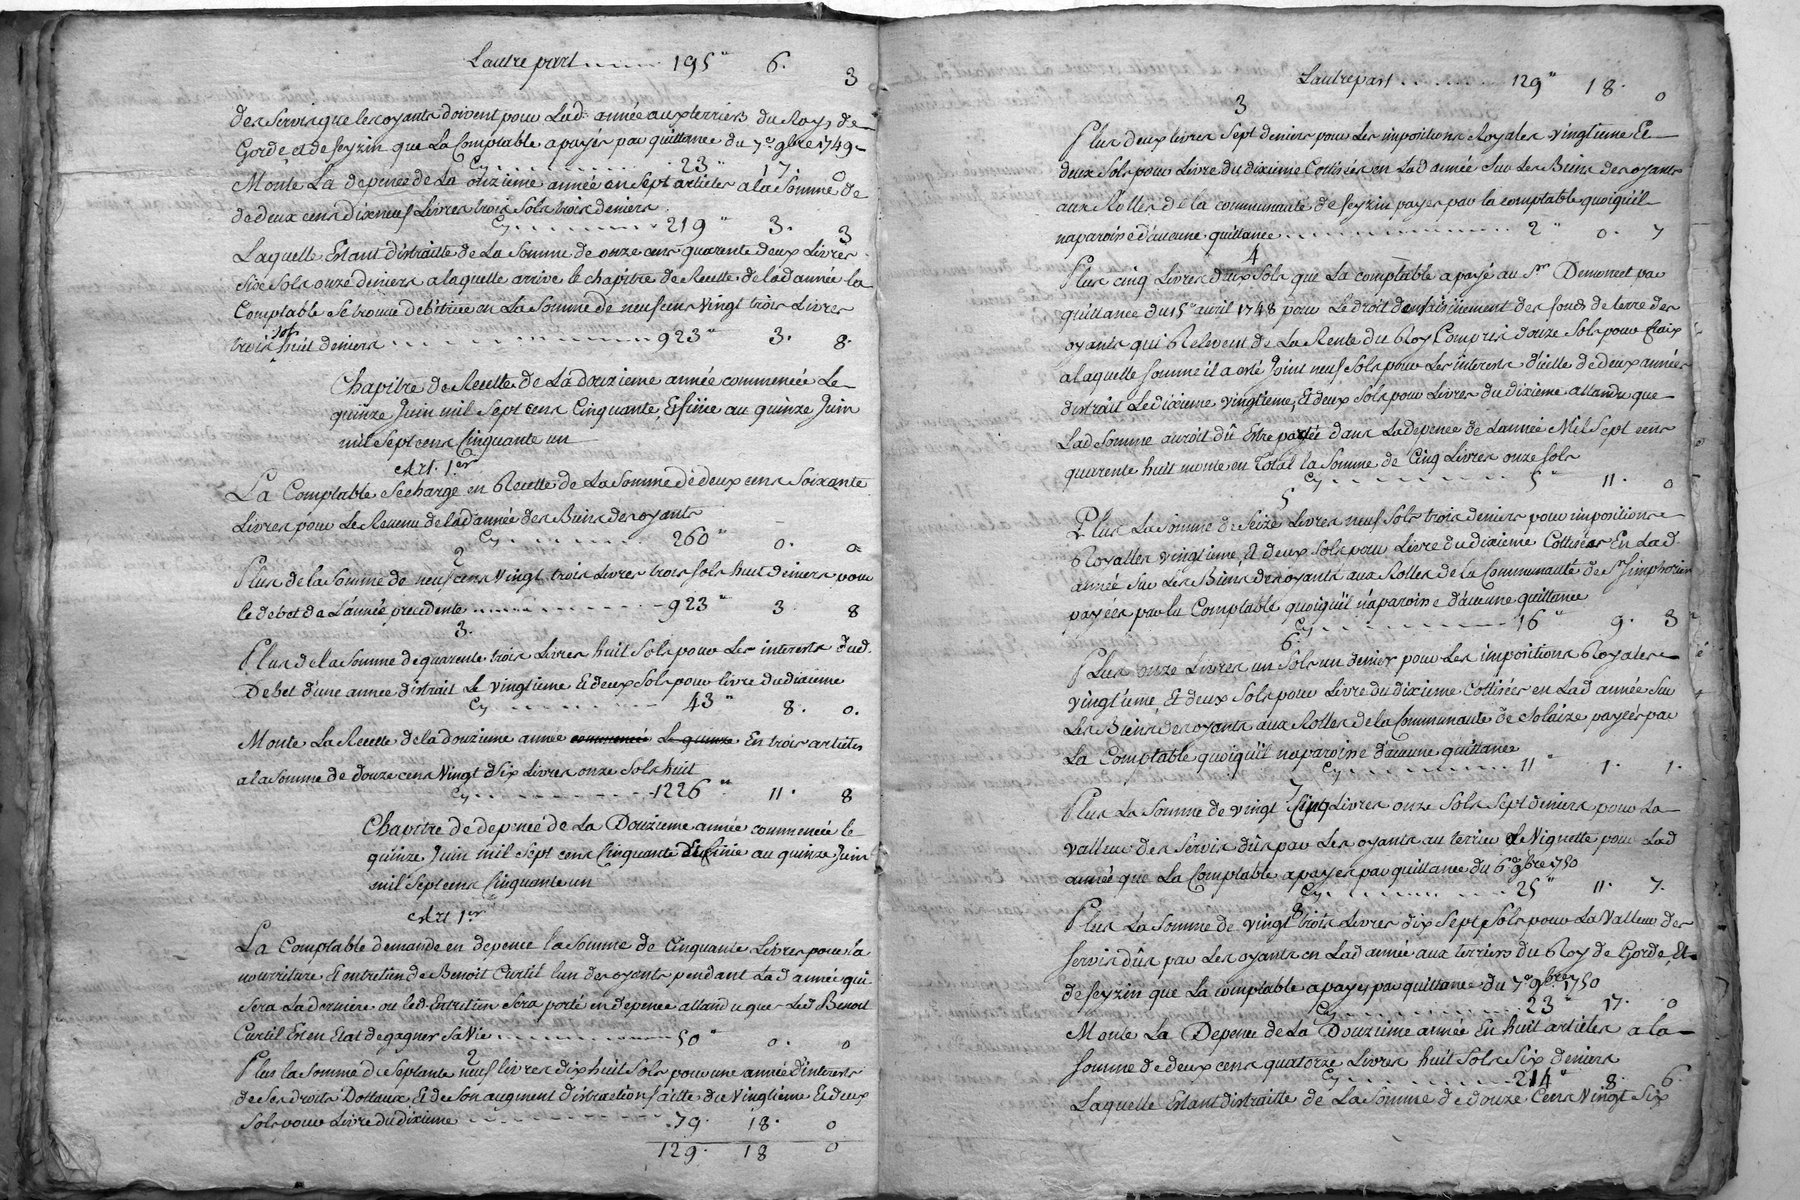 Lautre part ...... 195" 6. 3
des Servis que les oyants doivent pour Lad. année aux terriers du Roy, de
Gorde, et de feyzin que La Comptable a payés par quittance du 7e 9bre 1749
Cy .......... 23" 17 0
Monte La depence de La onzieme année en Sept articles a la Somme de
de deux cens dixneuf Livres trois Sols trois deniers
Cy .......... 219" 3. 3
Laquelle Estant distraitte de La Somme de onze cens quarente deux Livres
Six Sols onze deniers a laquelle arrive le chapitre de Recette de lad année la
Comptable Se trouve debitrice en La Somme de neuf cens vingt trois Livres
trois sols huit deniers .......... 923" 3. 8.
Chapitre de Recette de La douzieme année commencée Le
quinze Juin mil Sept cens Cinquante, Et finie au quinze Juin
mil Sept cens Cinquante un
Art. 1er
La Comptable Se charge en Recette de La Somme de deux cens Soixante
Livres pour Le Revenu de lad année des Biens des oyants
Cy .......... 260" 0. 0
2
Plus de la Somme de neuf cens Vingt trois Livres trois sols huit deniers pour
le debet de L'année precedente .......... 923" 3 8
3.
Plus de la Somme de quarente trois Livres huit Sols pour Les interets dud.
Debet d'une année distrait Le vingtieme Et deux Sols pour livre du dixieme
Cy .......... 43" 8. 0.
Monte La Recette de la douzieme année commencée Le quinze En trois articles
a la Somme de douze cens Vingt Six Livres onze Sols huit
Cy .......... 1226" 11. 8
Chapitre de depence de La Douzieme année commencée le
quinze Juin mil Sept cens Cinquante Et finie au quinze Juin
mil Sept cens Cinquante un
Art 1er
La Comptable demande en depence la Somme de Cinquante Livres pour la
nourriture Et entretien de Benoit Curtil l'un des oyants pendant Lad année qui
Sera La derniere ou led. Entretien Sera porté en depence attandu que Led Benoit
Curtil Est en Etat de gagner Sa Vie .......... 50" 0. 0
2
Plus la Somme de Septante neuf livres dix huit Sols pour une année d'interets
de Ses droits Dottaux Et de Son augment distraction faitte du Vingtieme Et deux
Sols pour Livre du dixieme .......... 79. 18. 0
129. 18 0
Lautre part ...... 129" 18. 0
3
Plus deux livres Sept deniers pour Les impositions Royales vingtieme Et
deux Sols pour Livre du dixieme Cottisées en Lad année Sur Les Biens des oyants
aux Rolles de la communauté de feyzin payes par la comptable quoiqu'il
naparoisse d'aucune quittance .......... 2" 0. 7
4
Plus cinq Livres deux Sols que La comptable a payé au Sr. Demoncet par
quittance du 15e avril 1748 pour Le droit de nsaisinement des fonds de terre des
oyants qui Relevent de La Rente du Roy Compris douze Sols pour fraix
a laquelle Somme il a eté Joint neuf Sols pour Les interets d'icelle de deux années
distrait Le dixieme vingtieme, Et deux Sols pour Livres du dixieme attandu que
Lad Somme auroit dû Etre portée dans La depence de L'année Mil Sept cens
quarente huit monte en Total la Somme de Cinq Livres onze Sols
Cy .......... 5" 11. 0
5
Plus La Somme de Seize Livres neuf Sols trois deniers pour impositions
Royalles vingtieme, Et deux Sols pour Livre du dixieme Cottisées En Lad
année Sur Les Biens des oyants aux Rolles de la Communauté de St Simphorien
payées par la Comptable quoiqu'il n'aparoisse d'aucune quittance
Cy .......... 16" 9. 3
6.
Plus onze Livres un Sols un denier pour Les impositions Royales
vingtieme, Et deux Sols pour Livre du dixieme Cottisées en Lad année Sur
Les Biens des oyants aux Rolles de la Communauté de Solaize payées par
La Comptable quoiqu'il naparoisse d'aucune quittance
Cy .......... 11" 1. 1.
7
Plus La Somme de vingt Cinq Livres onze Sols Sept deniers pour La
valleur des Servis dûs par Les oyants au terrier de Vignette pour Lad
année que La Comptable a payes par quittance du 6e 9bre 1750
Cy .......... 25" 11. 7.
8
Plus La Somme de vingt trois Livres dix Sept Sols pour La Valleur des
Servis dûs par Les oyants en Lad année aux terriers du Roy de Gorde, Et
de feyzin que La comptable a payes par quittance du 7e 9bre 1750
Cy .......... 23" 17. 0
Monte La Depence de La Douzieme année En huit articles a la
Somme de deux cens quatorze Livres huit Sols Six deniers
Cy .......... 214" 8. 6.
Laquelle Estant distraitte de La Somme de douze Cens Vingt Six